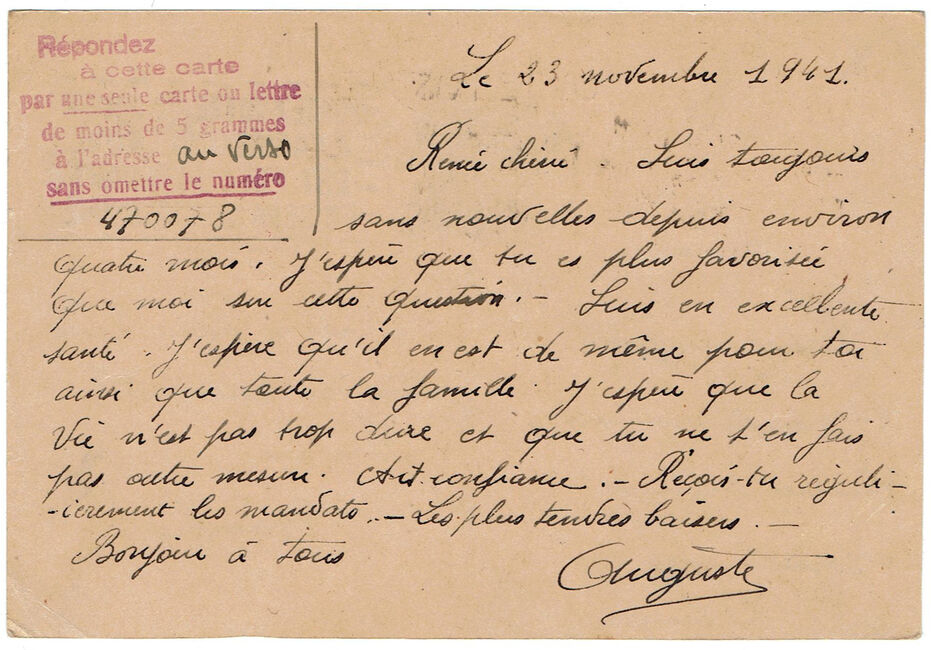 Répondez
à cette carte
par une seule carte ou lettre
de moins de 5 grammes
à l'adresse au verso
sans omettre le numéro
470078
Le 23 novembre 1941.
Renée chérie. Suis toujours
sans nouvelles depuis environ
quatre mois. J'espère que tu es plus favorisée
que moi sur cette question. - Suis en excellente
santé. J'espère qu'il en est de même pour toi
ainsi que toute la famille. J'espère que la
vie n'est pas trop dure et que tu ne t'en fais
pas outre mesure. Ait confiance. - Reçois-tu réguli-
-ièrement les mandats. - Les plus tendres baisers. -
Bonjour à tous
Auguste